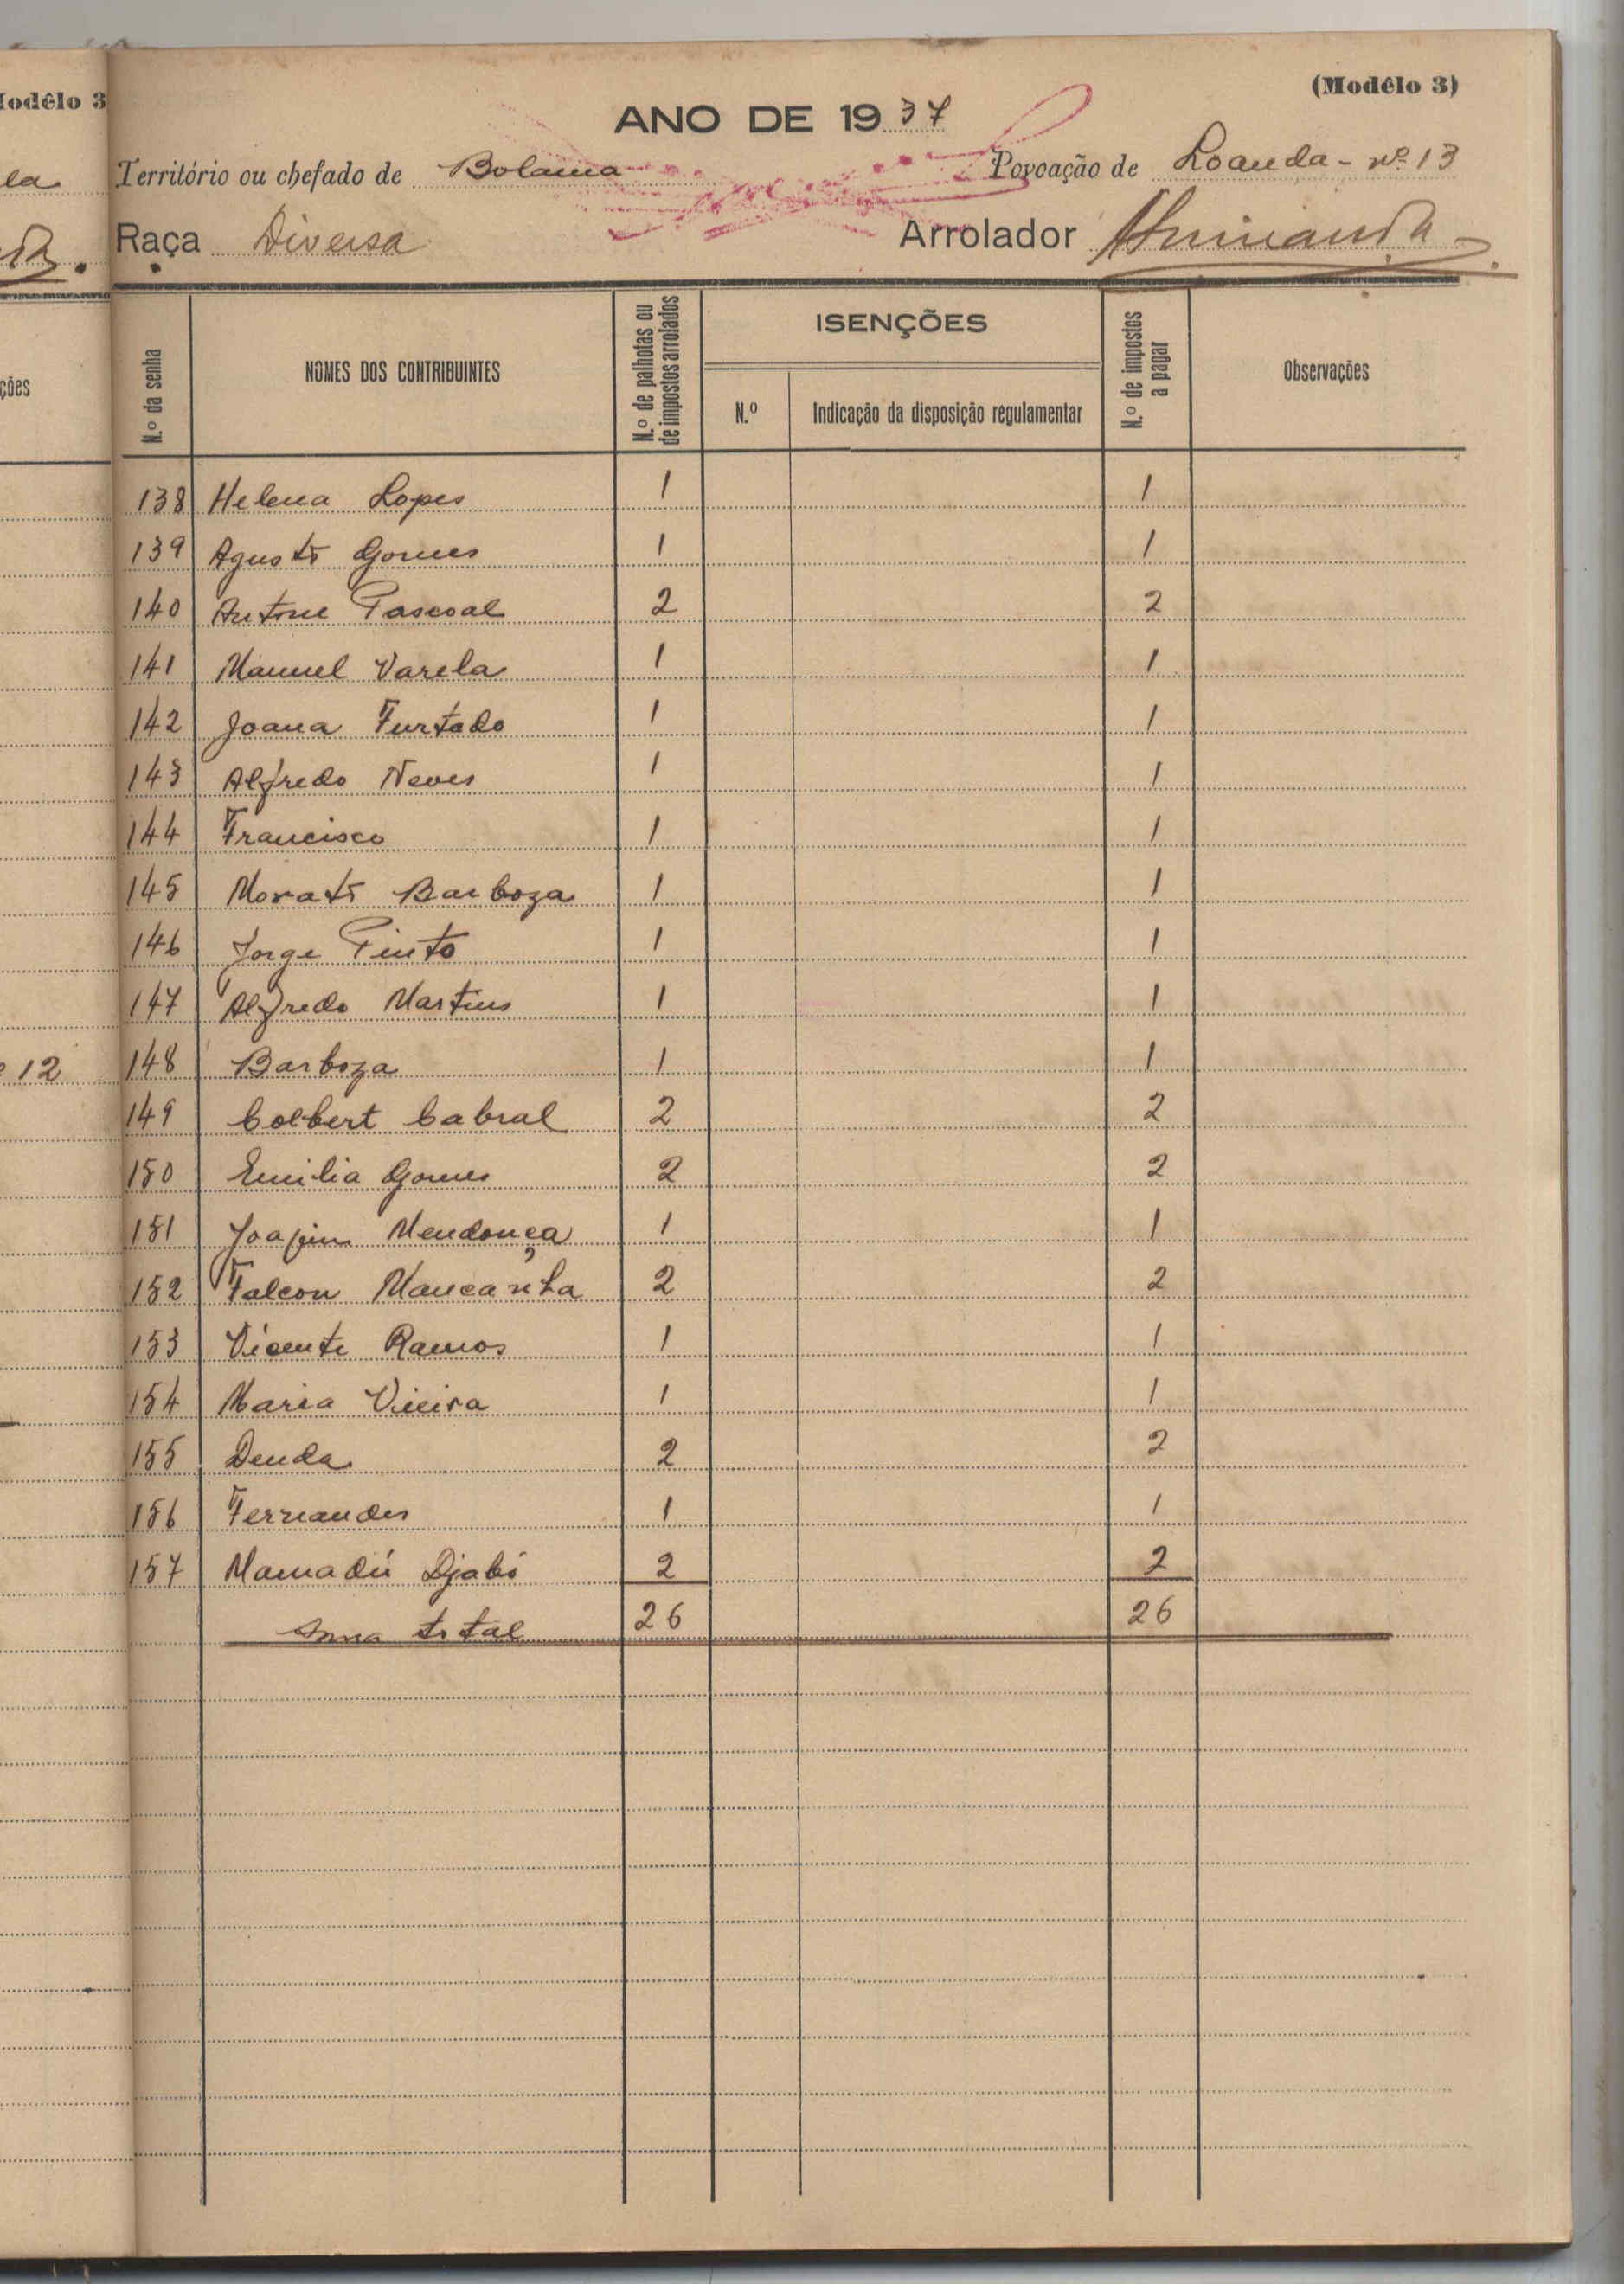 (Modêlo 3)
ANO DE 1937
Território ou chefado de Bolama Povoação de Loanda - nº 13
Raça Diversa Arrolador
N.º da senha NOMES DOS CONTRIBUINTES N.º de palhotas ou de impostos arrolados ISENÇÕES N.º Indicação da disposição regulamentar N.º de impostos a pagar Observações
138 Helena Lopes 1 1
139 Agusto Gomes 1 1
140 Antone Pascoal 2 2
141 Manuel Varela 1 1
142 Joana Furtado 1 1
143 Alfredo Neves 1 1
144 Francisco 1 1
145 Morato Barboza 1 1
146 Jorge Pinto 1 1
147 Alfredo Martins 1 1
148 Barboza 1 1
149 Colbert Cabral 2 2
150 Emilia Gomes 2 2
151 Joaqim Mendonça 1 1
152 Falcon Mancanha 2 2
153 Vicente Ramos 1 1
154 Maria Vieira 1 1
155 Denda 2 2
156 Fernandes 1 1
157 Mamadú Djabó 2 2
Soma total 26 26
odêlo 3
la
ções
12